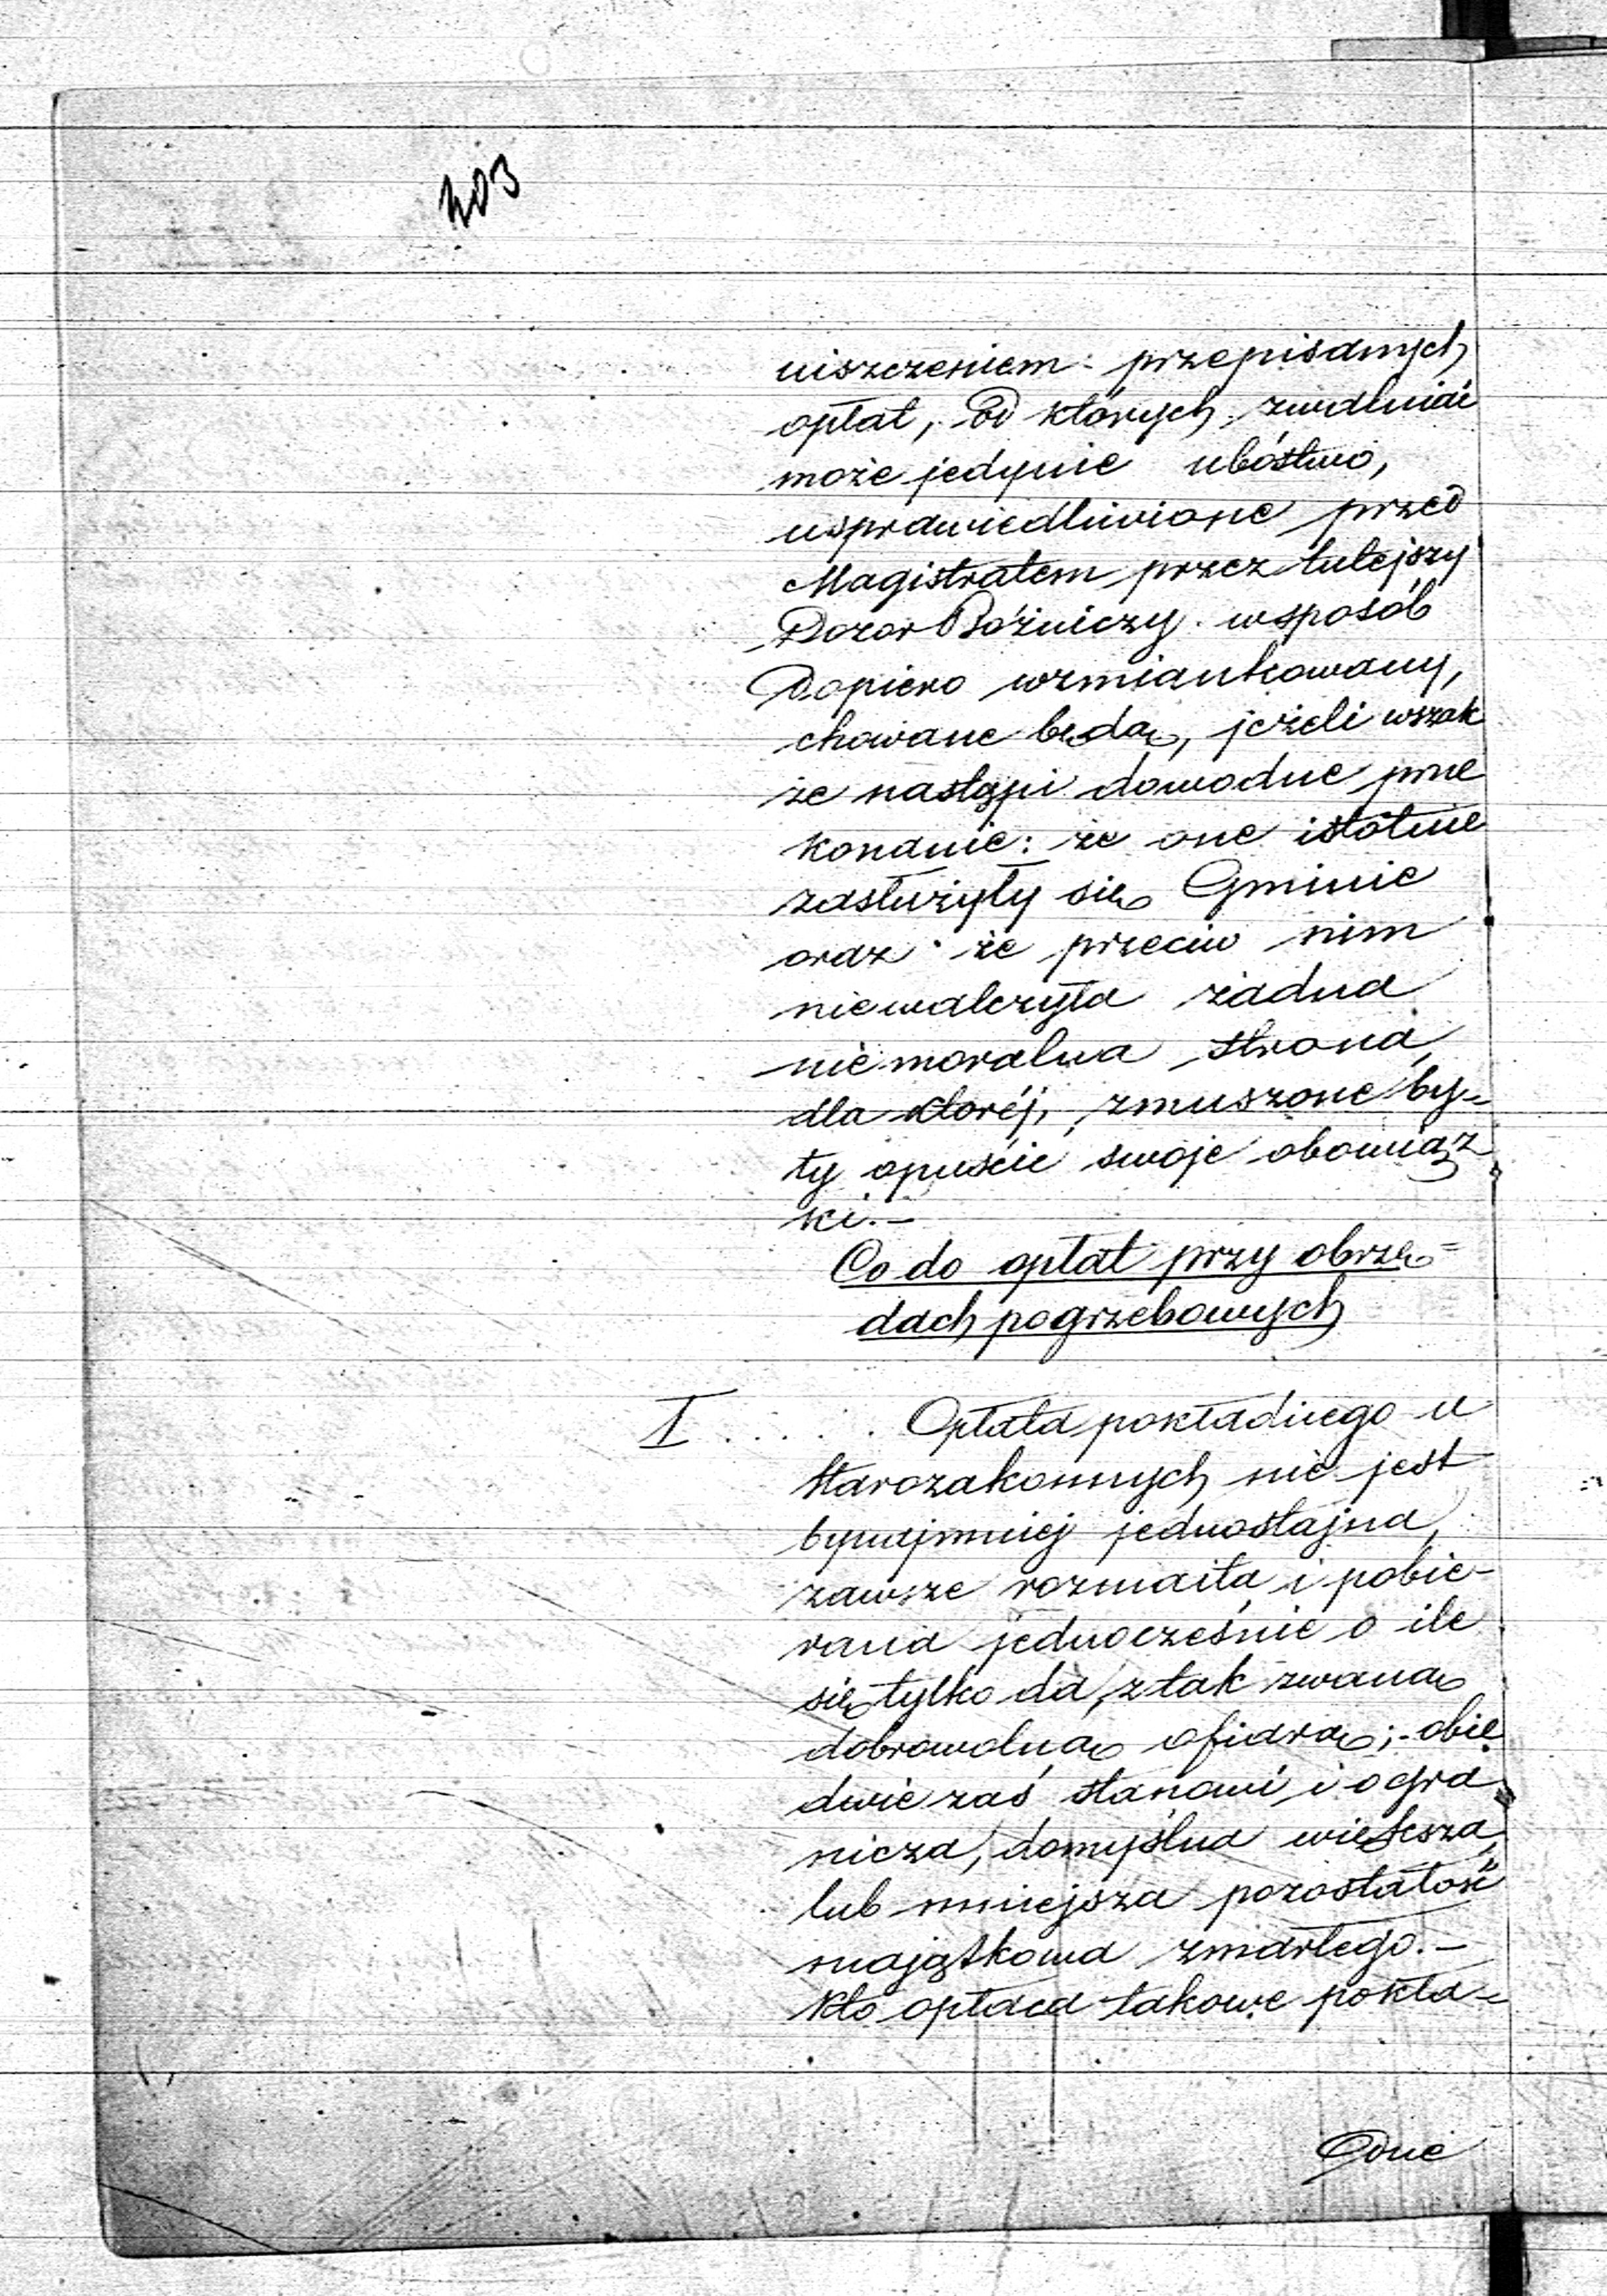 303
uiszczeniem przepisanych
opłat, od których, zwolnić
może jedynie ubóstwo,
usprawiedliwione przed
Magistratem przez tutejszy
Dozor Bóżniczy wsposób
Dopiero wzmiankowany,
chowane będą, jeżeli wszak
że nastąpi dowodne prze
konanie: że one istotnie
zasłużyły się Gminie
oraz że przeciw nim
niewalczyła żadna
niemoralna strona,
dla której, zmuszone by=
ły opuścić swoje obowiąz
ki.–
Co do opłat przy obrzę=
dach pogrzebowych
I..... Opłata pokładnego u
starozakonnych nie jest
bynajmniej jednostajna,
zawsze rozmaita, i pobie-
rana jednocześnie o ile
się tylko da, z tak zwaną
dobrowolną ofiarą; obie
dwie zaś stanowi i ogra
nicza, domyślna większa,
lub mniejsza pozostałość
majątkowa zmarłego.–
Kto opłaca takowe pokła=
Dne